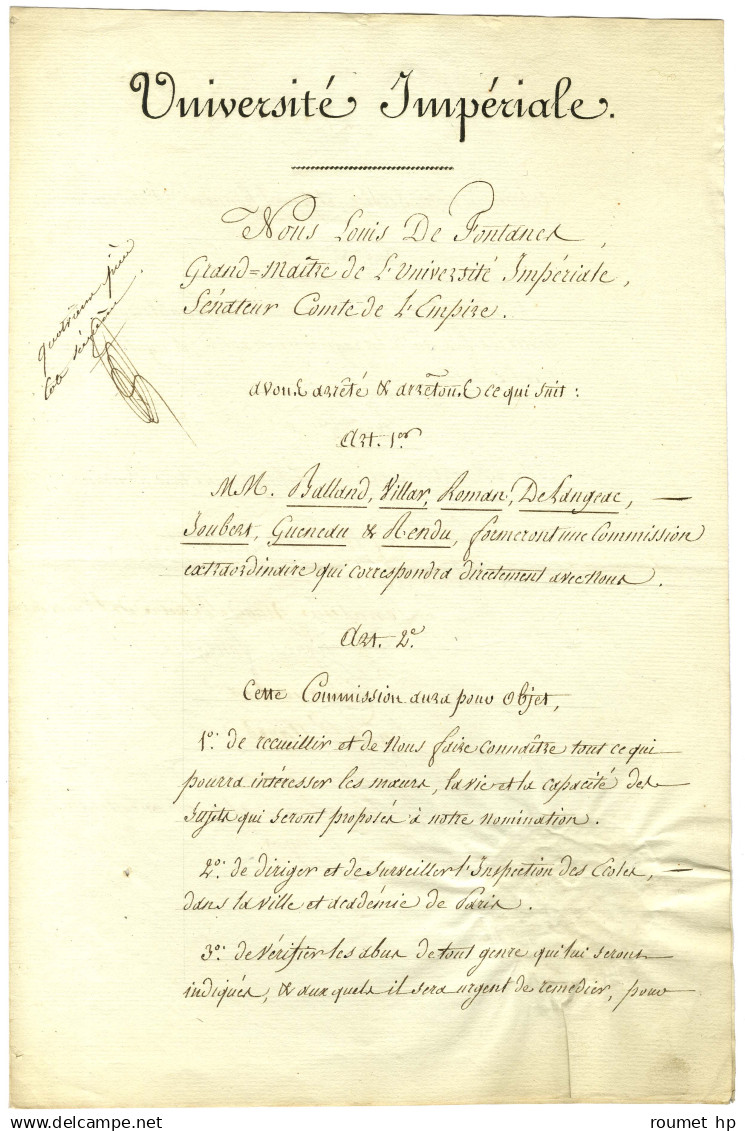 Université Impériale.
Nous Louis De Fontanes,
Grand=Maître de L'Université Impériale,
Sénateur Comte de L'Empire.
quatrieme pièce
Cote
avons arrêté & arrêtons ce qui suit :
Art. 1er
MM. Balland, Villar, Roman, De Langeac, —
Joubert, Gueneau & Rendu, formeront une Commission
extraordinaire qui correspondra directement avec Nous.
Art. 2e.
Cette Commission aura pour Objet,
1o. de recueillir et de Nous faire connaître tout ce qui
pourra intéresser les mœurs, la vie et la capacité des
Sujets qui seront proposés à notre nomination.
2o. de diriger et de surveiller l'Inspection des Ecoles, —
dans la Ville et académie de Paris.
3o. de Vérifier les abus de tout genre qui lui seront
indiqués, & auxquels il sera urgent de remedier, pour
roumet hp